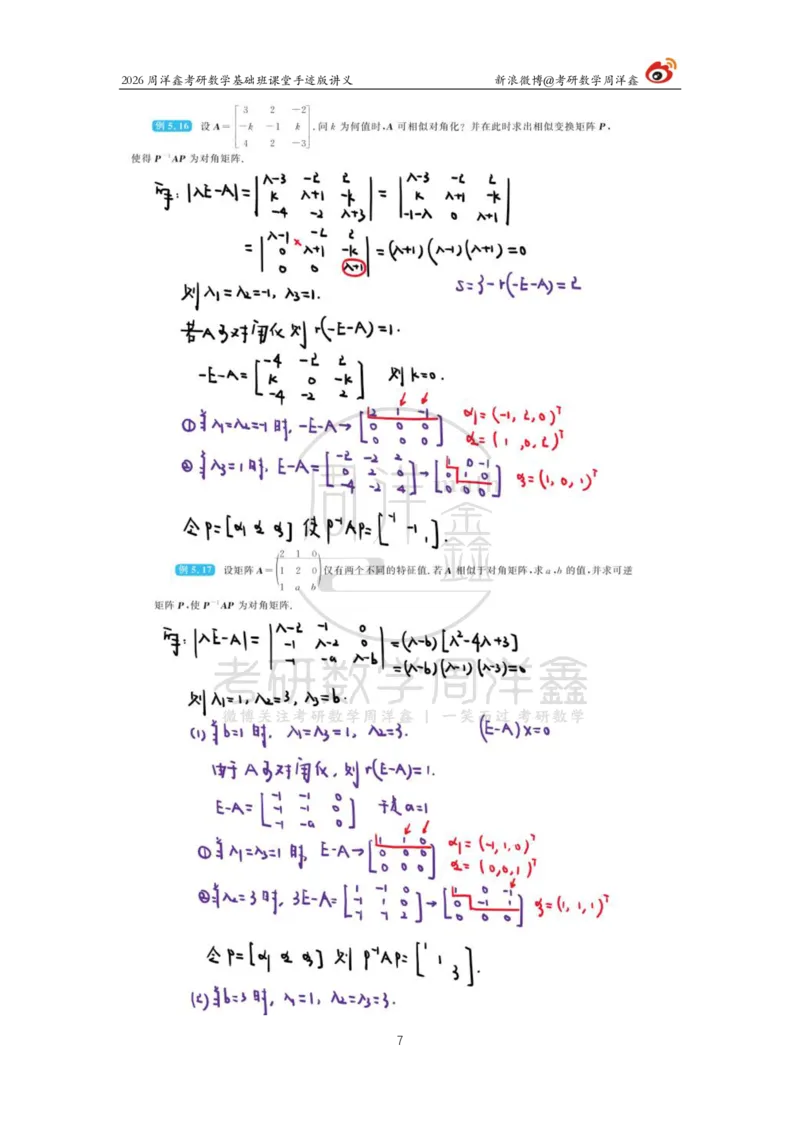 2026周洋鑫考研数学基础班课堂手迹版讲义 新浪微博@考研数学周洋鑫
例 5.16 设 A = [3 2 -2; -k -1 k; 4 2 -3], 问 k 为何值时, A 可相似对角化? 并在此时求出相似变换矩阵 P,
使得 P⁻¹AP 为对角矩阵.
解: |λE-A| = |λ-3 -2 2; k λ+1 -k; -4 -2 λ+3| = |λ-3 -2 2; k λ+1 -k; -1-λ 0 λ+1|
= |λ-1 -2 2; 0 λ+1 -k; 0 0 λ+1| = (λ+1)(λ-1)(λ+1)=0
则 λ₁=λ₂=-1, λ₃=1. S=3-r(-E-A)=2
若A可对角化 则 r(-E-A)=1.
-E-A = [-4 -2 2; k 0 -k; -4 -2 2] 则 k=0.
①当λ₁=λ₂=-1时, -E-A → [2 1 -1; 0 0 0; 0 0 0] α₁=(-1,2,0)ᵀ
α₂=(1,0,2)ᵀ
②当λ₃=1时, E-A = [-2 -2 2; 0 2 0; -4 -2 4] → [1 0 -1; 0 1 0; 0 0 0] α₃=(1,0,1)ᵀ
令P=[α₁ α₂ α₃] 使 P⁻¹AP=[-1 -1 1].
例 5.17 设矩阵 A = (2 1 0; 1 2 0; 1 a b) 仅有两个不同的特征值. 若 A 相似于对角矩阵, 求 a, b 的值, 并求可逆
矩阵 P, 使 P⁻¹AP 为对角矩阵.
解: |λE-A| = |λ-2 -1 0; -1 λ-2 0; -1 -a λ-b| = (λ-b)[λ²-4λ+3]
= (λ-b)(λ-1)(λ-3)=0
考研数学周洋鑫
则 λ₁=1, λ₂=3, λ₃=b.
微博关注考研数学周洋鑫 | 一笑而过 考研数学
(1) 当b=1时, λ₁=λ₃=1, λ₂=3. (E-A)x=0
由于A可对角化, 则 r(E-A)=1.
E-A = [-1 -1 0; -1 -1 0; -1 -a 0] 于是 a=1
①当λ₁=λ₃=1时, E-A → [1 1 0; 0 0 0; 0 0 0] α₁=(-1,1,0)ᵀ
α₂=(0,0,1)ᵀ
②当λ₂=3时, 3E-A = [1 -1 0; -1 1 0; -1 -1 2] → [1 0 -1; 0 -1 1; 0 0 0] α₃=(1,1,1)ᵀ
令P=[α₁ α₂ α₃] 则 P⁻¹AP=[1 1 3].
(2) 当b=3时, λ₁=1, λ₂=λ₃=3.
7